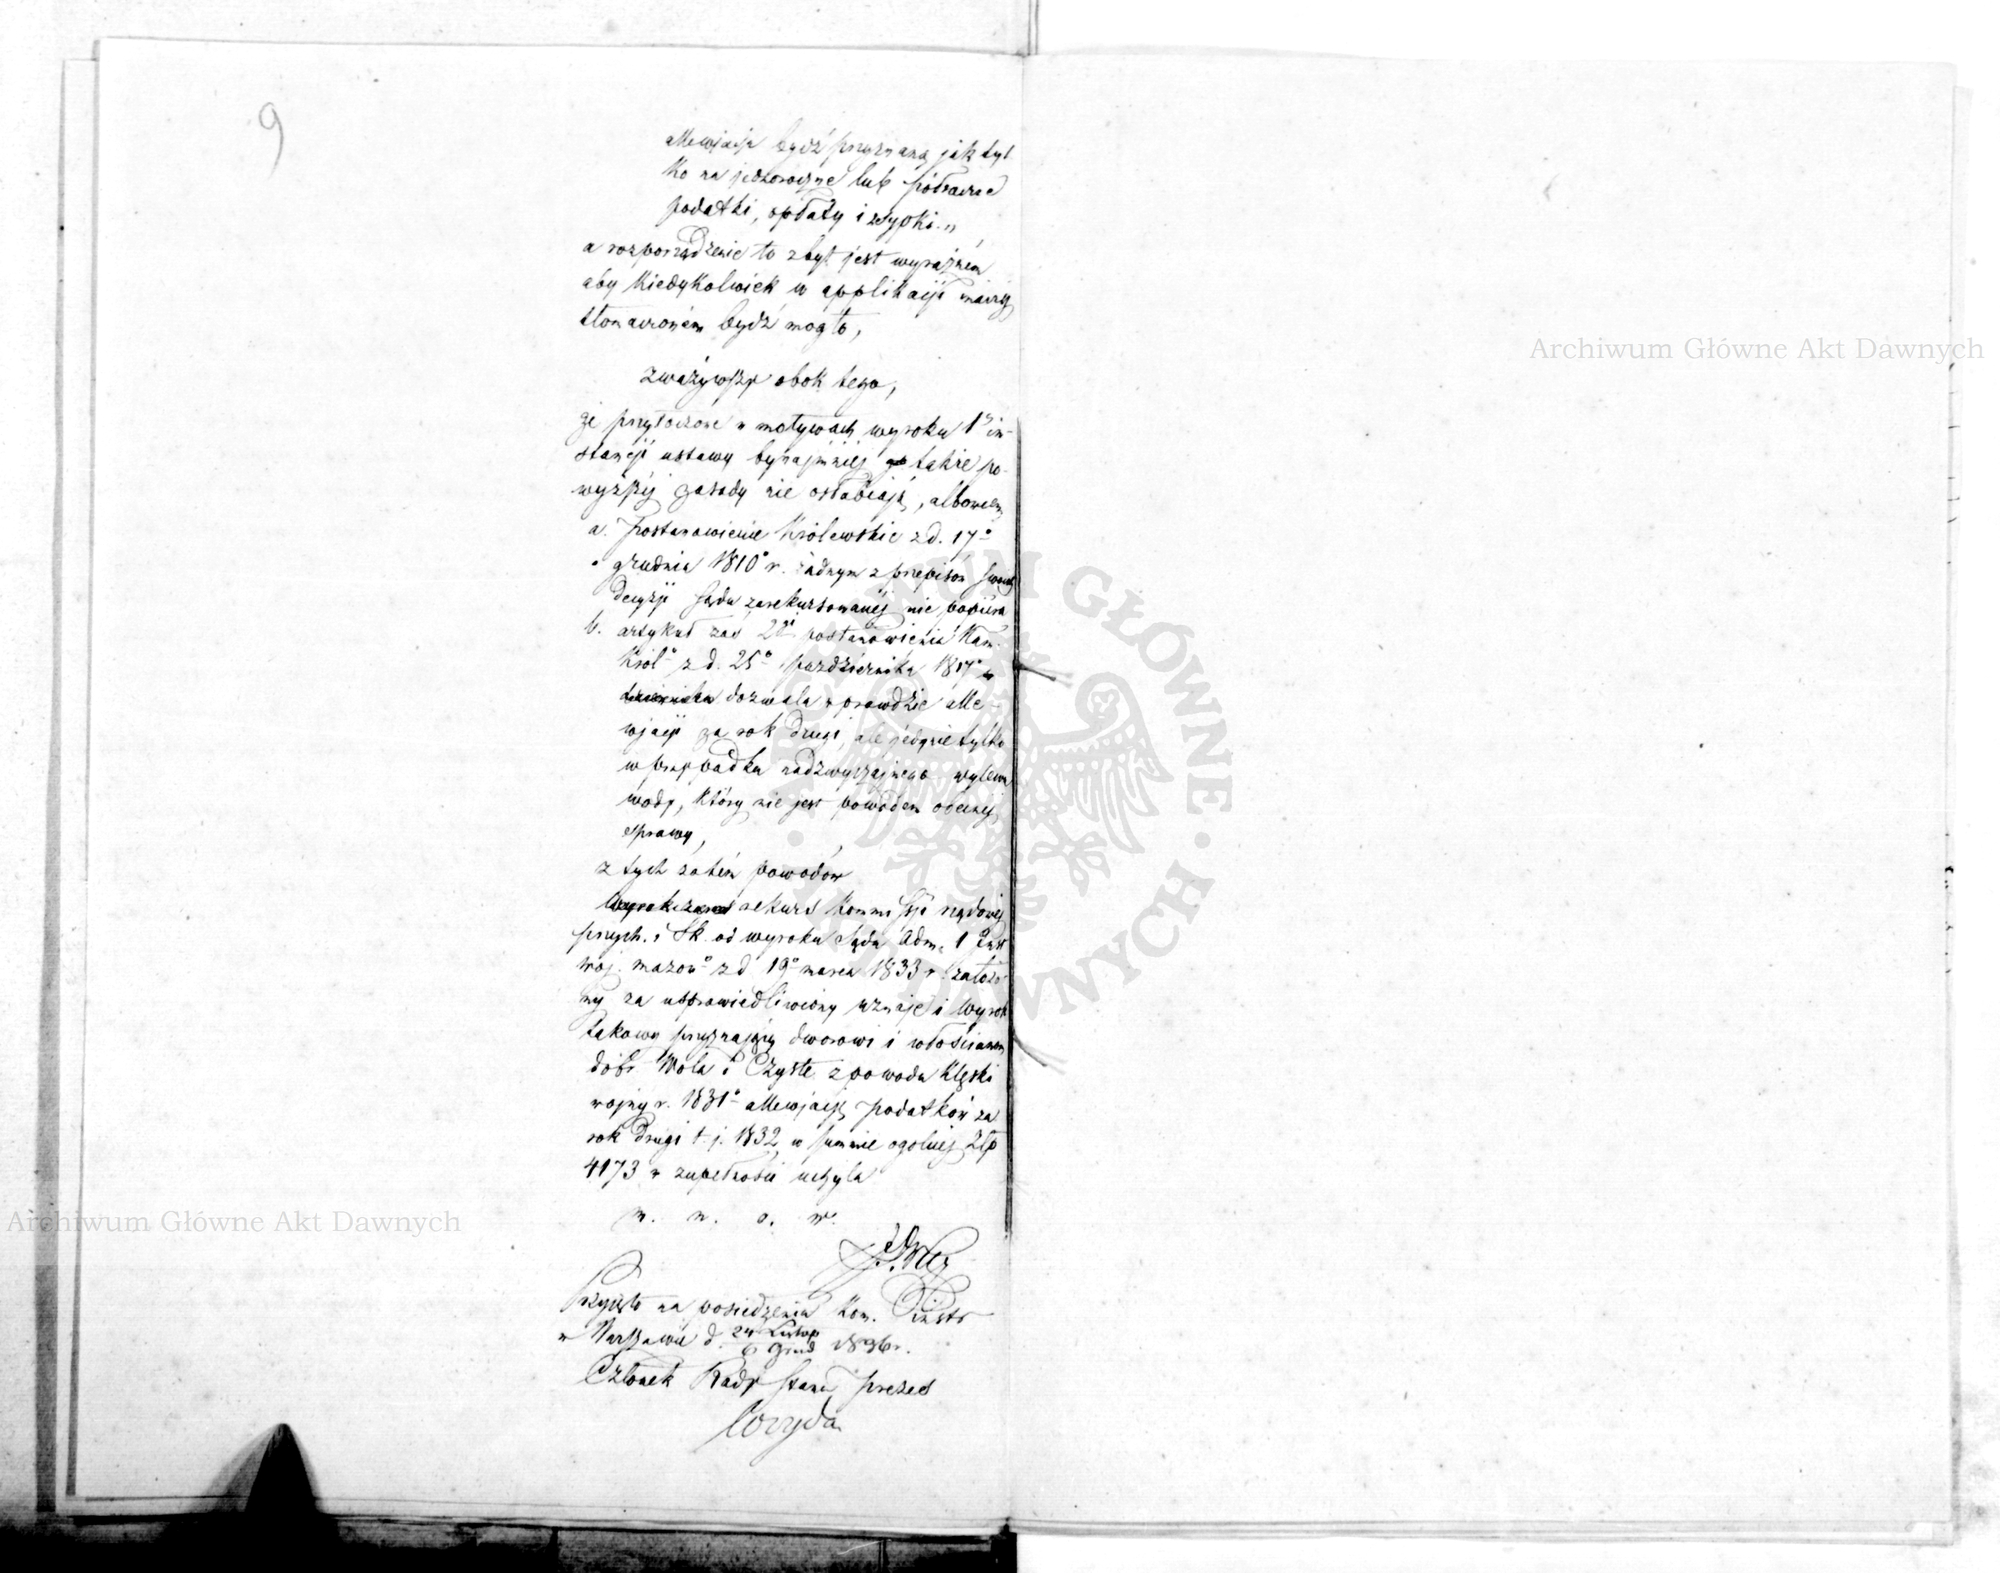 9
allewjacja bydź przyznaną jak tyl
ko na jednoroczne lub półroczne
podatki, opłaty i zsypki.„
a rozporządzenie to zbyt jest wyraźnem
aby kiedykolwiek w applikacji inaczej
tłomaczonem bydź mogło,
zważywszy obok tego,
że przytoczone w motywach wyroku 1ej in-
stancji ustawy bynajmniej także po-
wyższej zasady nie osłabiają, albowiem
a. Postanowienie Królewskie z d. 17o
grudnia 1810o r. żadnym z przepisów swoich
decyzji Sądu zarekursowanej nie popiera
b. artykuł zaś 22gi postanowienia Nam.
Królo z d. 25o października 1817o
dozwala wprawdzie alle-
wjacji za rok drugi, ale jedynie tylko
w przypadku nadzwyczajnego wylewu
wody, który nie jest powodem obecnej
sprawy,
z tych zatem powodów
rekurs Kommissji rządowej
przych. i Sk. od wyroku Sądu Adm. 1 Inst
woj. mazowo z d 19o marca 1833 r. założo
ny za usprawiedliwiony uznaje i wyrok
takowy przyznający dworowi i włościanom
dóbr Wola i Czyste z powodu klęski
wojny r. 1831o allewjacją podatków za
rok drugi t. j. 1832 w summie ogólnej Złp
4173 w zupełności uchyla
m. n. o. w.
Przyjęto na posiedzeniu Kom.
w Warszawie d. 24 Listop
6 Grud 1836 r.
Członek Rady Stanu prezes